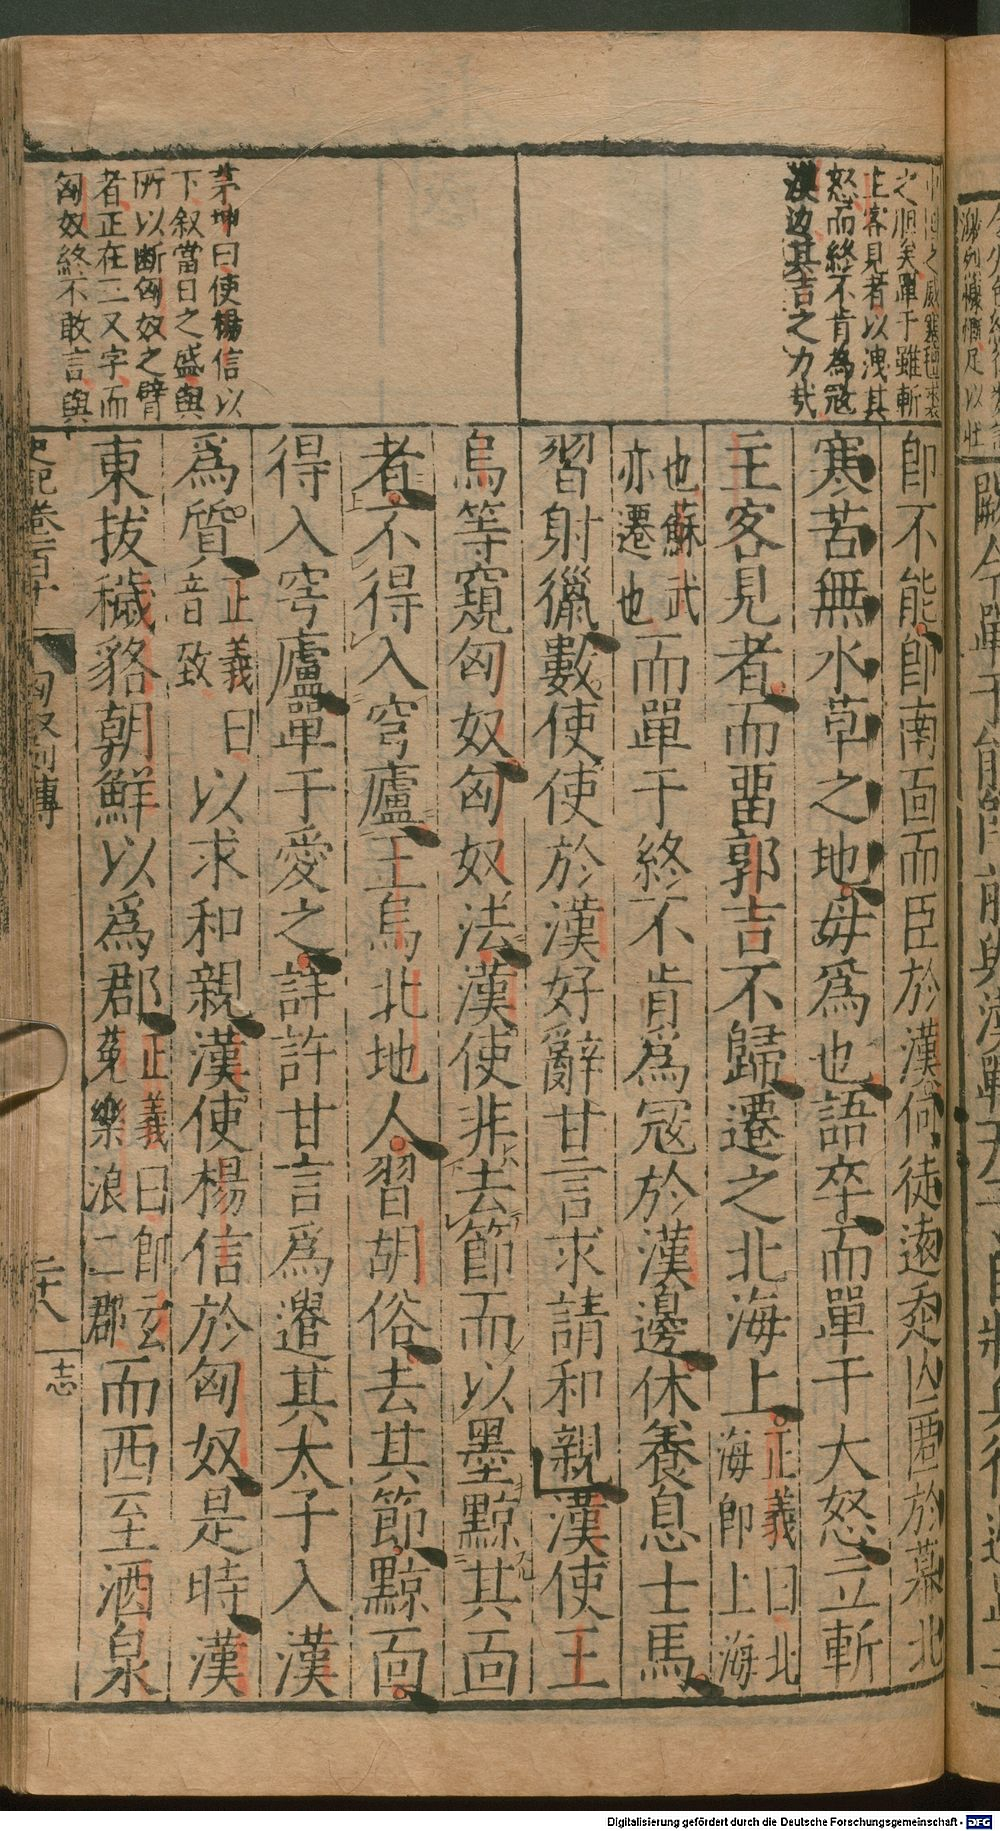 之胆矣單于雖斬
主客見者以洩其
怒而終不肯為寇
漢边其吉之力哉
茅坤曰使楊信以
下叙當日之盛與
所以断匈奴之臂
者正在三又字而
匈奴終不敢言與
卽不能卽南面而臣於漢何徒遠走亾匿於幕北
寒苦無水草之地毋爲也語卒而單于大怒立斬
主客見者而畱郭吉不歸遷之北海上正義曰北海卽上海
也蘇武亦遷也而單于終不肯爲寇於漢邊休養息士馬
習射獵數使使於漢好辭甘言求請和親漢使王
烏等窺匈奴匈奴法漢使非去節而以墨黥其面
者不得入穹廬王烏北地人習胡俗去其節黥面
得入穹廬單于愛之詳許甘言爲遣其太子入漢
爲質正義曰音致以求和親漢使楊信於匈奴是時漢
東拔穢貉朝鮮以爲郡正義曰卽玄菟樂浪二郡而西至酒泉
史記卷一百十 匈奴列傳 二十八 志
Digitalisierung gefördert durch die Deutsche Forschungsgemeinschaft - DFG